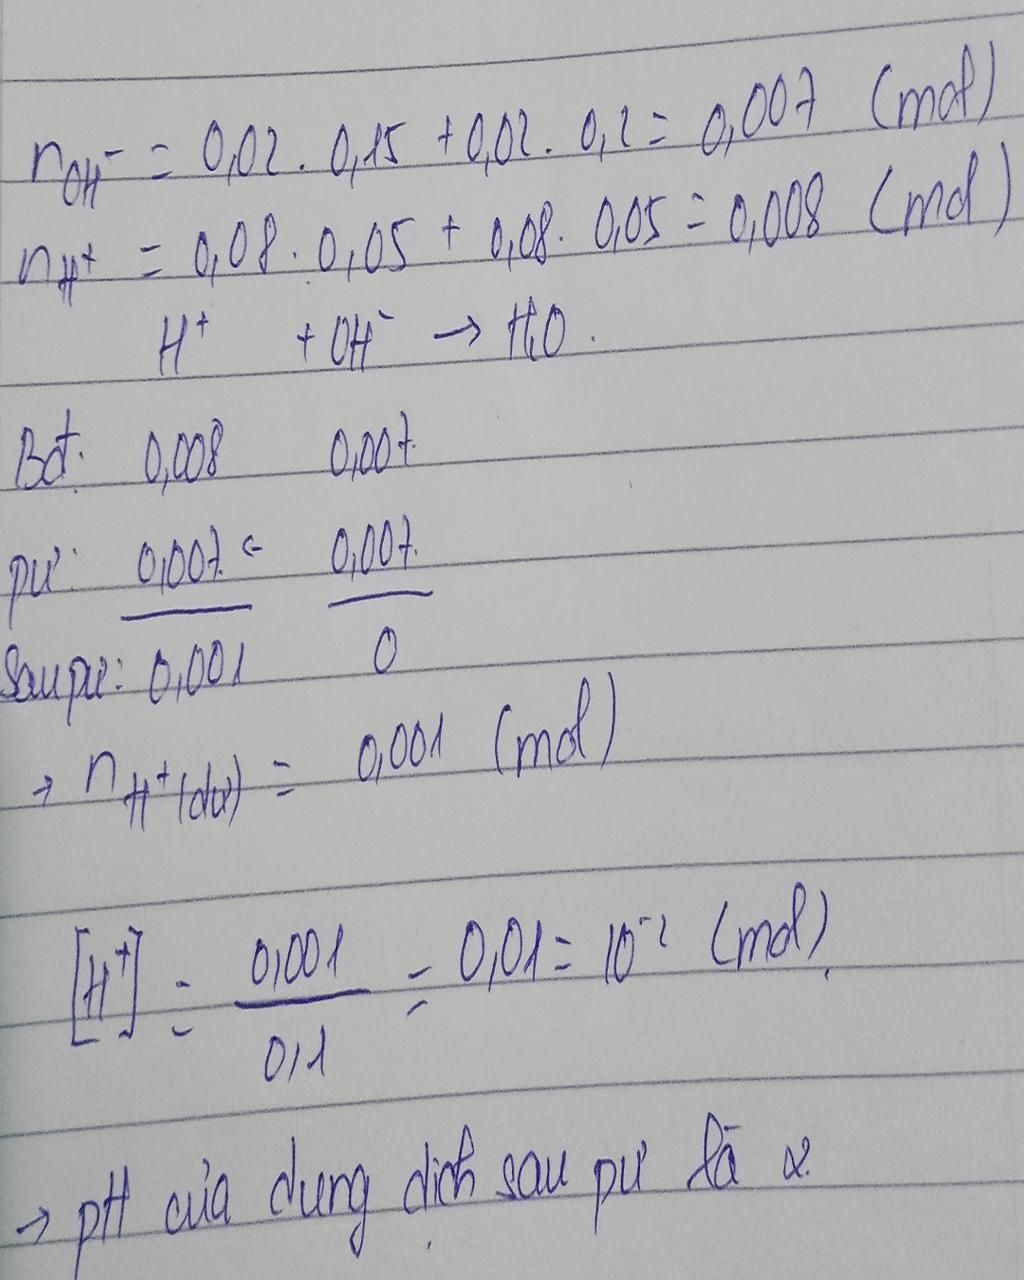 nOH⁻ = 0,02 . 0,15 + 0,02 . 0,2 = 0,007 (mol)
nH⁺ = 0,08 . 0,05 + 0,08 . 0,05 = 0,008 (mol)
H⁺ + OH⁻ → H₂O .
Bđ: 0,008 0,007
pư: 0,007 ← 0,007
Sau pư: 0,001 0
→ nH⁺(dư) = 0,001 (mol)
[H⁺] = 0,001 / 0,1 = 0,01 = 10⁻² (mol)
→ pH của dung dịch sau pư là 2.